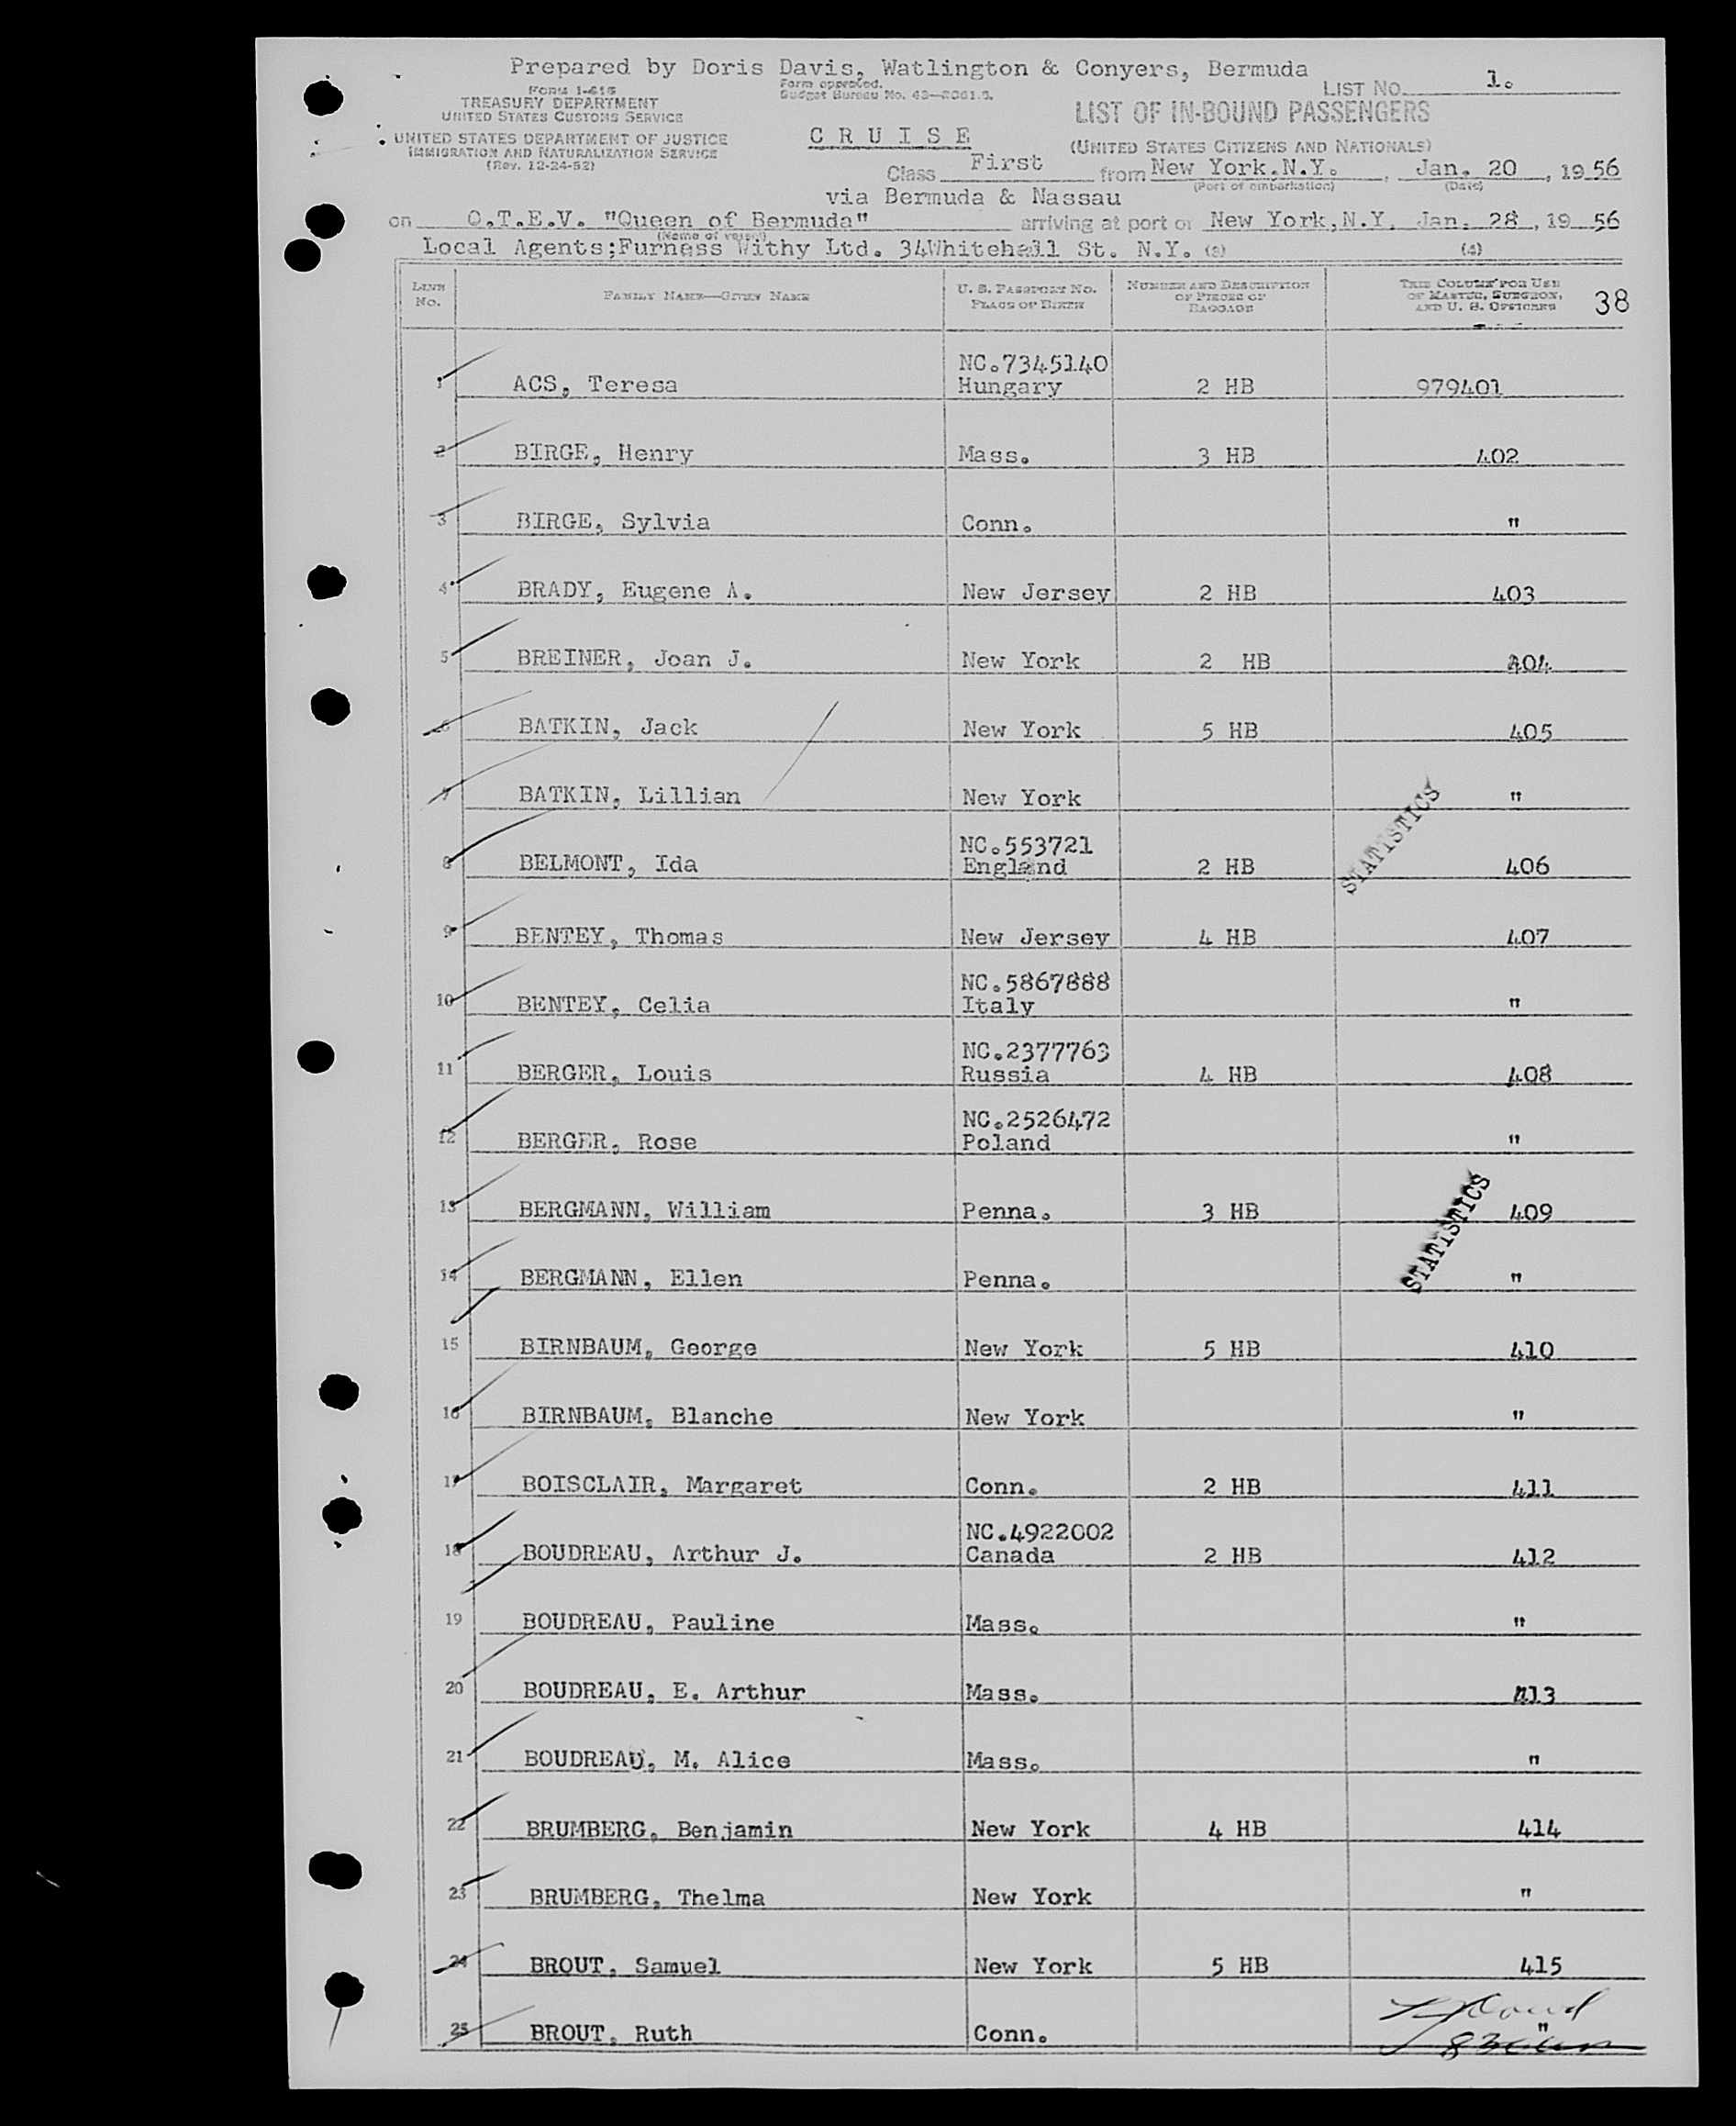 Prepared by Doris Davis, Watlington & Conyers, Bermuda
Form approved.
Budget Bureau No. 43—R061.3.
LIST NO. 1.
FORM I-415
TREASURY DEPARTMENT
UNITED STATES CUSTOMS SERVICE
LIST OF IN-BOUND PASSENGERS
UNITED STATES DEPARTMENT OF JUSTICE
IMMIGRATION AND NATURALIZATION SERVICE
(Rev. 12-24-52)
C R U I S E
(UNITED STATES CITIZENS AND NATIONALS)
Class First from New York.N.Y. , Jan. 20 , 1956
(Port of embarkation) (Date)
via Bermuda & Nassau
on O.T.E.V. "Queen of Bermuda" arriving at port of New York,N.Y. Jan. 28 , 1956
(Name of vessel)
Local Agents;Furness Withy Ltd. 34Whitehall St. N.Y. (3) (4)
LINE No. FAMILY NAME—GIVEN NAME U. S. PASSPORT NO. PLACE OF BIRTH NUMBER AND DESCRIPTION OF PIECES OF BAGGAGE THIS COLUMN FOR USE OF MASTER, SURGEON, AND U. S. OFFICERS 38
NC.7345140
1 ACS, Teresa Hungary 2 HB 979401
2 BIRGE, Henry Mass. 3 HB 402
3 BIRGE, Sylvia Conn. "
4 BRADY, Eugene A. New Jersey 2 HB 403
5 BREINER, Joan J. New York 2 HB 404
6 BATKIN, Jack New York 5 HB 405
7 BATKIN, Lillian New York "
STATISTICS
NC.553721
8 BELMONT, Ida England 2 HB 406
9 BENTEY, Thomas New Jersey 4 HB 407
NC.5867888
10 BENTEY, Celia Italy "
NC.2377763
11 BERGER, Louis Russia 4 HB 408
NC.2526472
12 BERGER, Rose Poland "
13 BERGMANN, William Penna. 3 HB 409
STATISTICS
14 BERGMANN, Ellen Penna. "
15 BIRNBAUM, George New York 5 HB 410
16 BIRNBAUM, Blanche New York "
17 BOISCLAIR, Margaret Conn. 2 HB 411
NC.4922002
18 BOUDREAU, Arthur J. Canada 2 HB 412
19 BOUDREAU, Pauline Mass. "
20 BOUDREAU, E. Arthur Mass. 413
21 BOUDREAU, M. Alice Mass. "
22 BRUMBERG, Benjamin New York 4 HB 414
23 BRUMBERG, Thelma New York "
24 BROUT, Samuel New York 5 HB 415
25 BROUT, Ruth Conn. "